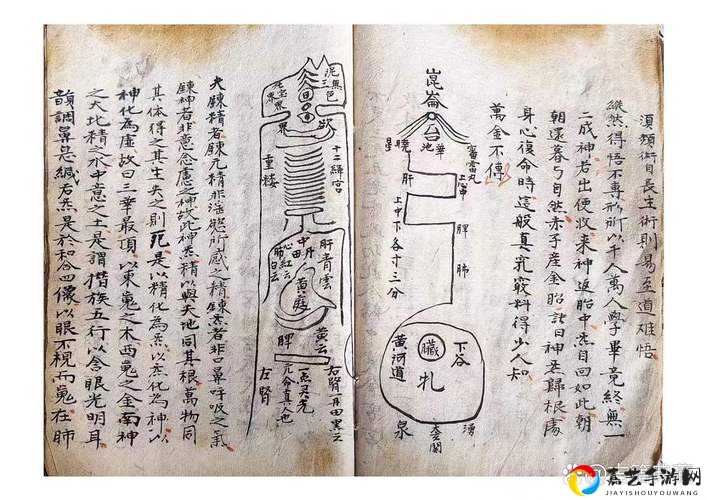 術則易至道难悟
縱然得悟不專形所以千人萬人學畢竟終無一
二成神若出便收来神返胎中炁自回如此朝
朝還暮々自然赤子產金胎註曰神炁歸根處
身心復命時這般真孔竅料得少人知
萬金不傳
崑崙
台
華池
肝
脾
肺
上中下各寸三分
下谷
臟
札
黃河道
湧
泉
十二絳宮
重楼
中丹田
肝青雲
心紅云
肺白云
黃庭
黃云
脾
右腎
左腎
元命真人也
夫錬精者錬元精非淫慾所感之精錬炁者非口鼻呼吸之氣
錬神者非意念慮之神故此神炁精以與天地同其根萬物同
其体得之其生失之則死是以精化為炁以炁化為神以
神化為虛故曰三華最頂以東䰟之木西䰟之金南神
之火北精之水中意之土是謂攢族五行以含眼光明耳
韻調鼻息緘舌炁是於和合四像以眼不視而䰟在肺
嘉艺手游网
JIAYISHOUYOUWANG